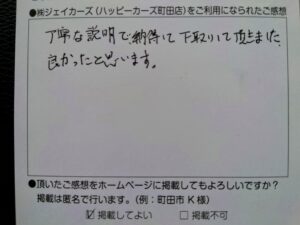 ●㈱ジェイカーズ（ハッピーカーズ町田店）をご利用になられたご感想
丁寧な説明で納得して下取りして頂きました。
良かったと思います。
●頂いたご感想をホームページに掲載してもよろしいですか？
掲載は匿名で行います。（例：町田市 K 様）
☑ 掲載してよい　□ 掲載不可